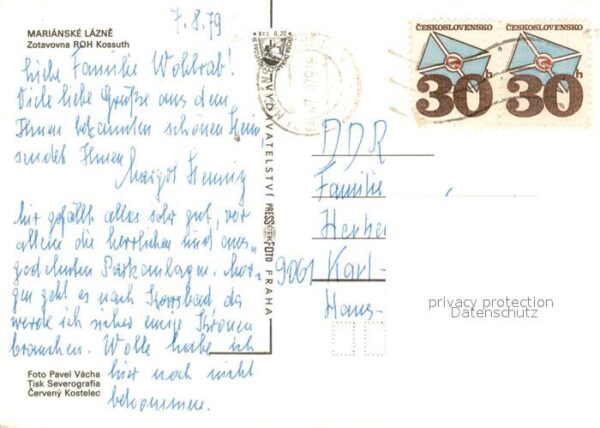 7.8.79
MARIÁNSKÉ LÁZNĚ
Zotavovna ROH Kossuth
Liebe Familie Wohlrab!
Viele liebe Grüße aus dem
Ihnen bekannten schönen Heim
sendet Ihnen
Margot Hennig
hier gefällt alles sehr gut, vor
allem die herrlichen und aus-
gedehnten Parkanlagen. Mor-
gen geht es nach Karlsbad da
werde ich sicher einige Kronen
brauchen. Wolle habe ich
hier noch nicht
bekommen.
Foto Pavel Vácha
Tisk Severografia
Červený Kostelec
KčS 0,20
VYDAVATELSTVÍ PRESSFOTO PRAHA
ČESKOSLOVENSKO
30h
ČESKOSLOVENSKO
30h
DDR
Familie
Herber
9061 Karl-
Marx-
privacy protection
Datenschutz